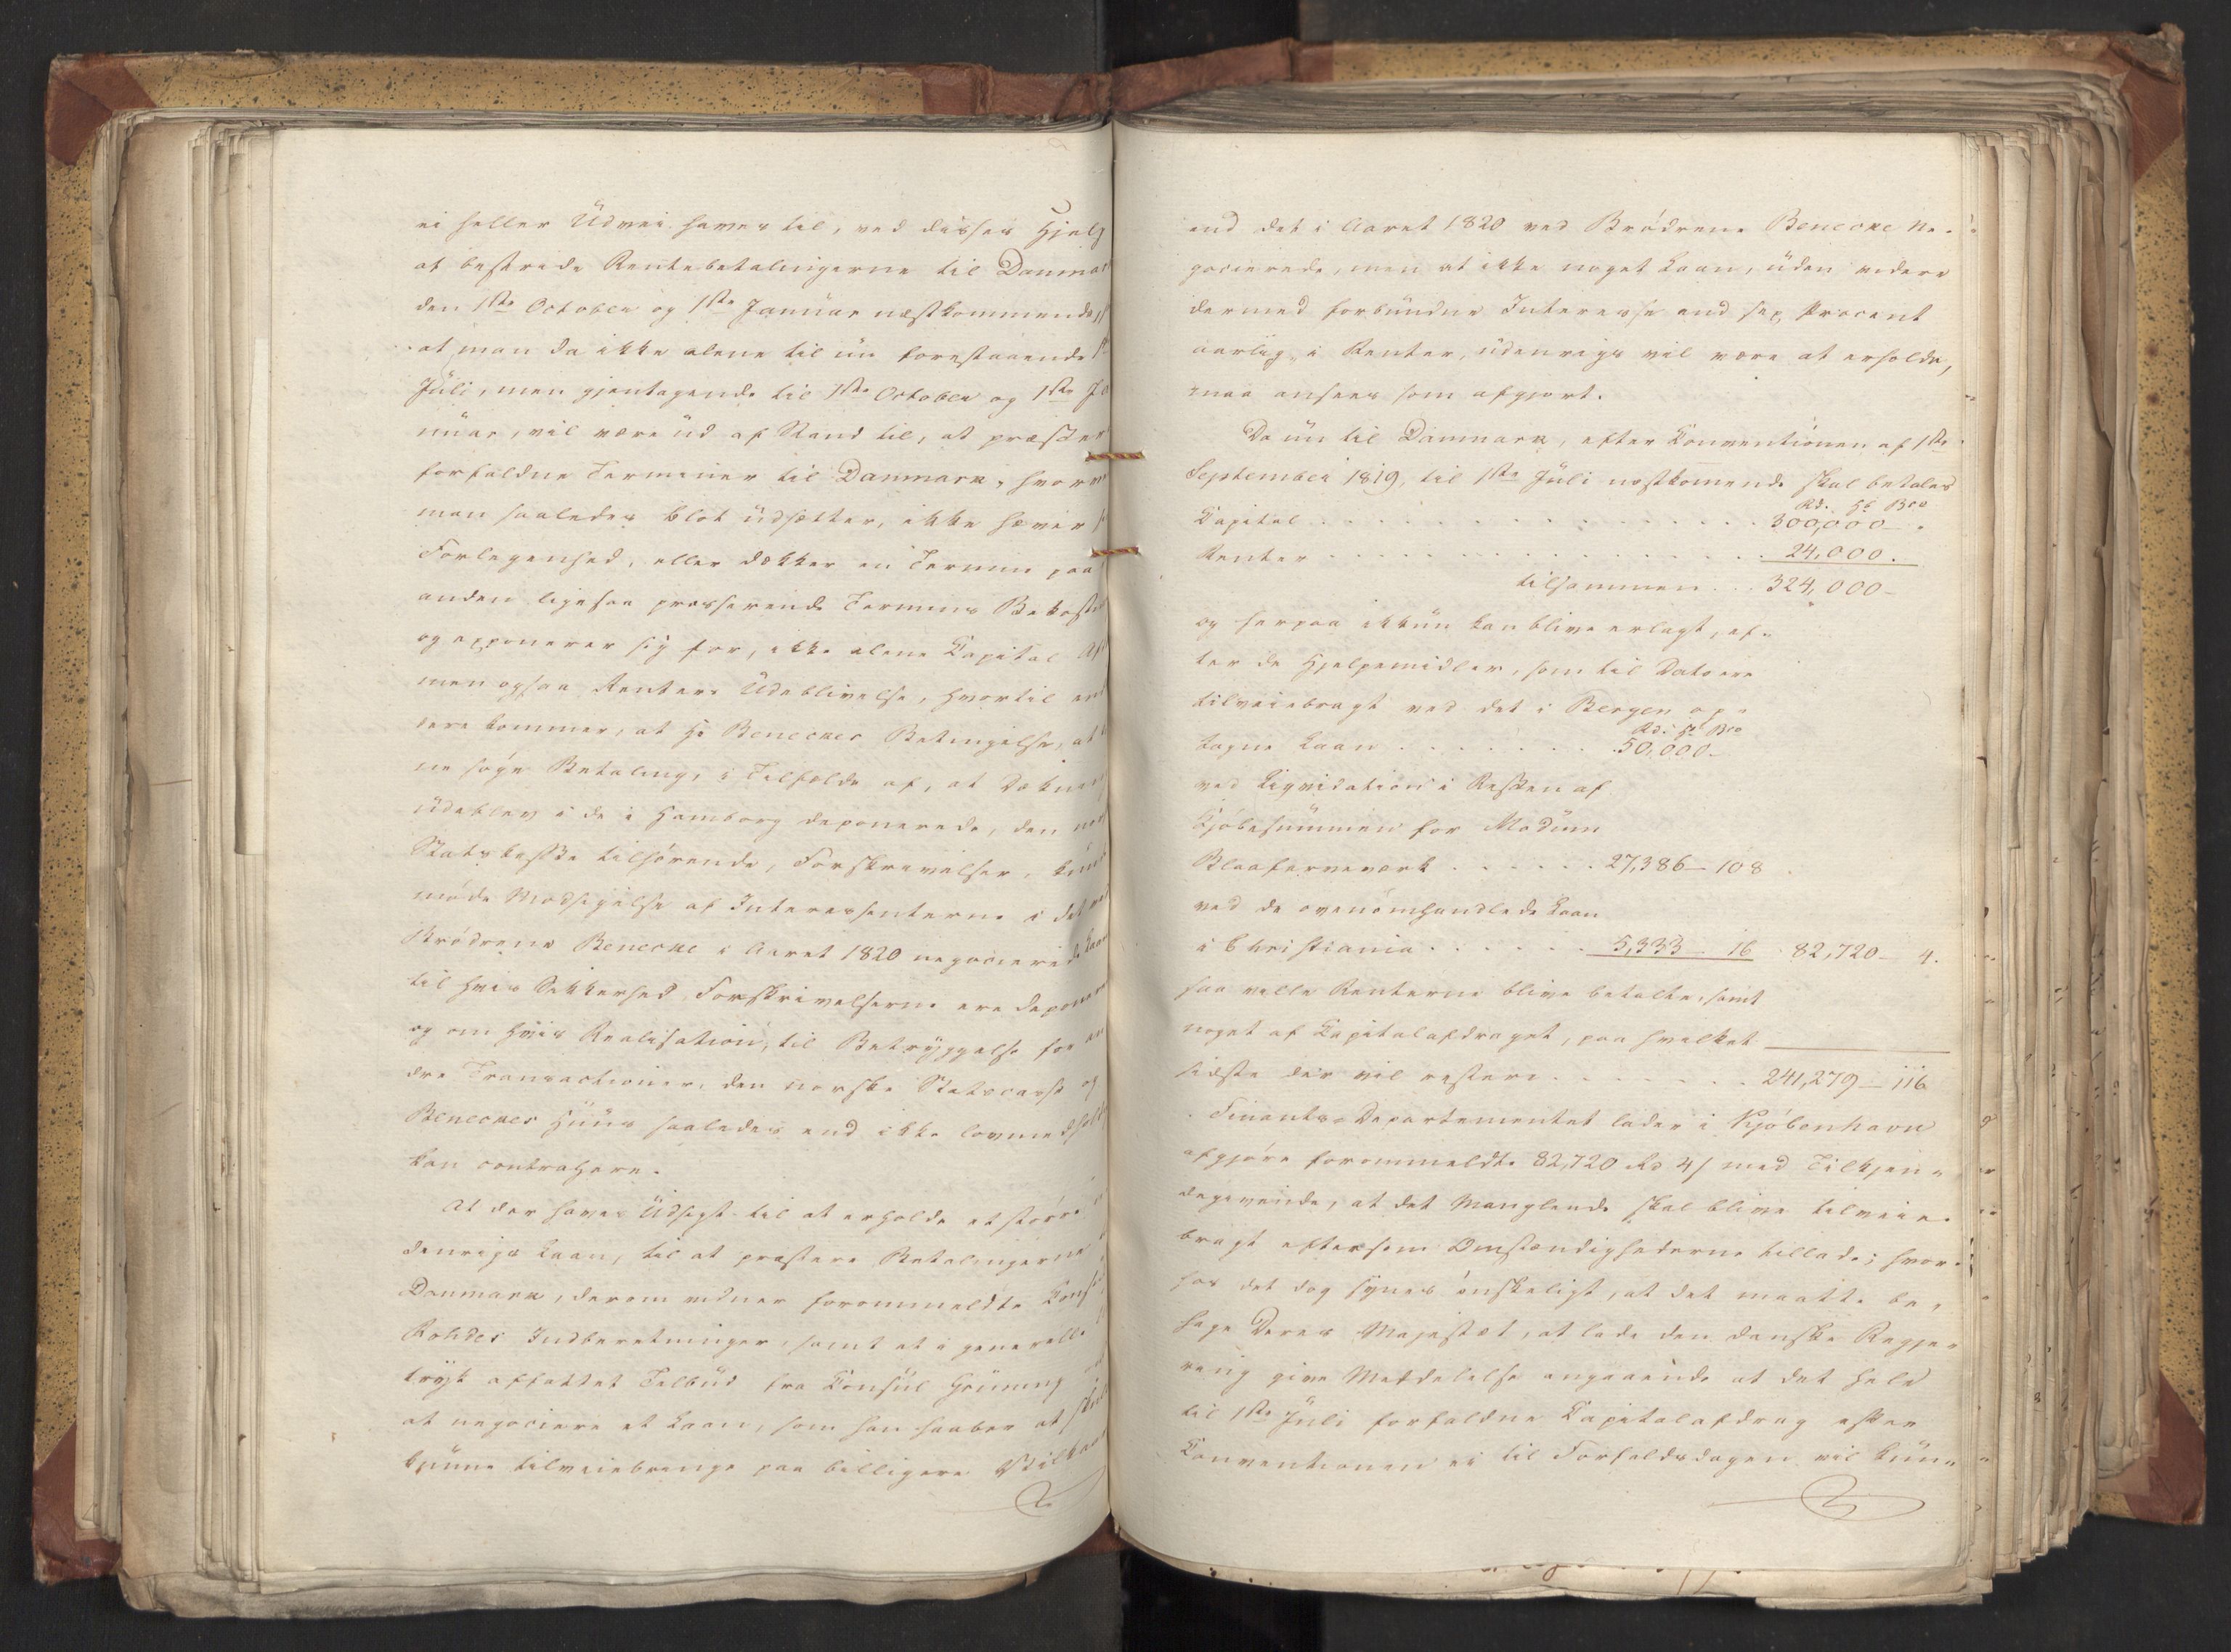 ei heller Udvei haves til, ved disses Hjelp
at bestride Rentebetalingerne til Danmar
den 1ste October og 1ste Januar næstkommende,
at man da ikke alene til nu forestaaende 1ste
Juli, men gjentagende til 1ste October og 1ste Ja
nuar, vil være ud af Stand til, at præster
forfaldne Terminer til Danmark, hvorve
man saaledes blot udsætter, ikke hæver
Forlegenhed, eller dækker en Termin paa
anden ligesaa presserende Termins Bekost
og exponerer sig for, ikke alene Capital Af
men ogsaa Renters Udeblivelse, hvortil en
dere kommer, at Hr Beneckes Betingelse, at
ne søge Betaling, i Tilfælde af, at Dækn
udeblev i de i Hamborg deponerede, den nor
Statskasse tilhørende, Forskrivelser, kun
møde Modsigelse af Interessenterne i det ved
Brødrene Benecke i Aaret 1820 negocierede Laan
til hvis Sikkerhed Forskrivelserne ere depone
og om hvis Realisation, til Betryggelse for an
dre Transactioner, den norske Statscasse og
Beneckes Huus saaledes end ikke lovmedholde
kan contrahere.
At der haves Udsigt til at erholde et større
denrigs Laan, til at præstere Betalingerne
Danmark, derom vidner forommeldte Cons
Rohdes Indberetninger, samt et i generelle
tryk affattet Tilbud fra Consul Grüning
at negociere et Laan, som han haaber at
kunne tilveiebringe paa billigere Vilkaar
end det i Aaret 1820 ved Brødrene Benecke ne-
gocierede, men at ikke noget Laan, uden videre
dermed forbundne Interesse end sex Procent
aarlig i Renter, udenrigs vil være at erholde,
maa ansees som afgjort.
Da nu til Danmark, efter Conventionen af 1ste
September 1819, til 1ste Juli næstkomende skal betales
Rd. Hb Bco
Capital . . . . . . 300,000 -
Renter . . . . . . 24,000.
tilsammen . . . 324,000 -
og herpaa ikkun kan blive erlagt, ef-
ter de Hjelpemidler, som til Dato ere
tilveiebragt ved det i Bergen op-
Rd. Hb Bco
tagne Laan . . . . . . 50,000 -
ved Liqvidation i Resten af
Kjøbesummen for Modum
Blaafarveværk . . . . . . 27,386 - 108
ved de ovenomhandlede Laan
i Christiania . . . . . . 5,333 - 16 82,720 - 4.
saa ville Renterne blive betalte, samt
noget af Capitalafdraget, paa hvilket
sidste der vil restere . . . . . . 241,279 - 116
Finants-Departementet lader i Kjøbenhavn
afgjøre forommeldte 82,720 Rd 4 s med Tilkjen-
degivende, at det Manglende skal blive tilveie-
bragt eftersom Omstændighederne tillade; hvor-
hos det dog synes ønskeligt, at det maatte be-
hage Deres Majestæt, at lade den danske Regje-
ring give Meddelelse angaaende at det hele
til 1ste Juli forfaldne Capitalafdrag efter
Conventionen ei til Forfaldsdagen vil kun-